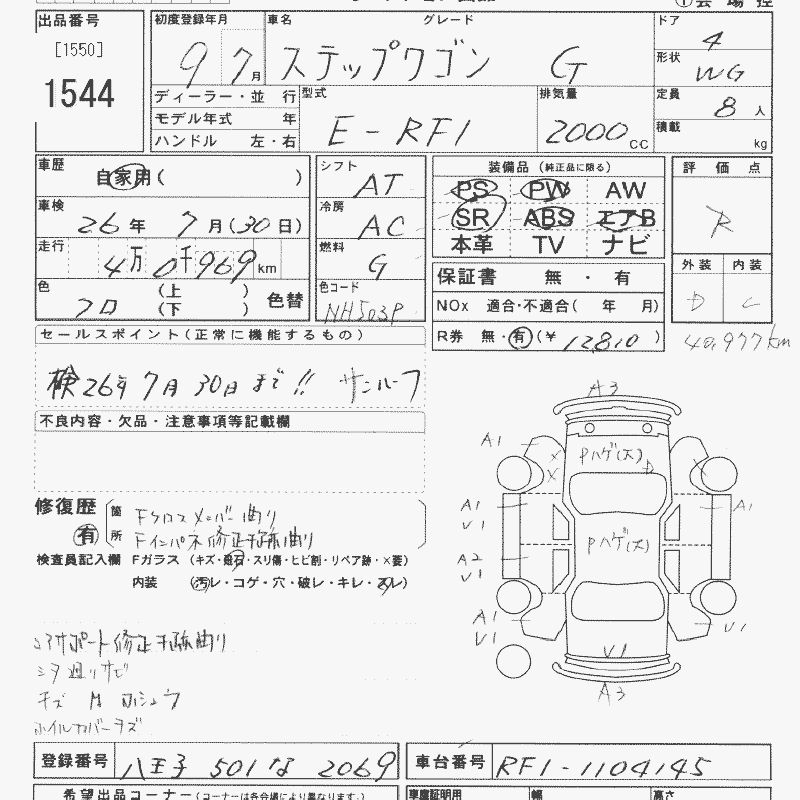 出品番号
[1550]
1544
初度登録年月
9 7月
車名
ステップワゴン
グレード
G
ドア
4
形状
WG
定員
8人
積載
kg
ディーラー・並 行
モデル年式 年
ハンドル 左・右
型式
E-RF1
排気量
2000cc
車歴
自家用( )
車検
26年 7月(30日)
走行
4万0千969km
色
クロ
(上 )
(下 )
色替
シフト
AT
冷房
AC
燃料
G
色コード
NH503P
装備品(純正品に限る)
PS PW AW
SR ABS エアB
本革 TV ナビ
保証書 無・有
NOx 適合・不適合( 年 月)
R券 無・有(¥12810)
評価点
R
外装 内装
D C
40,977km
セールスポイント(正常に機能するもの)
検26年7月30日まで!! サンルーフ
不良内容・欠品・注意事項等記載欄
修復歴
有
箇所
Fクロスメンバー曲り
Fインパネ修正手跡曲り
検査員記入欄 Fガラス (キズ・飛石・スリ傷・ヒビ割・リペア跡・×要)
内装 (汚レ・コゲ・穴・破レ・キレ・スレ)
コアサポート修正手跡曲り
シタ廻リサビ
ホイルカバーキズ
A3
A1
Pハゲ(大)
A1
V1
A1
Pハゲ(大)
A2
V1
A1
V1
V1
V1
A3
登録番号
八王子 501 な 2069
車台番号
RF1-1104145
希望出品コーナー(コーナーは各会場により異なります。)
車庫証明用
幅
高さ